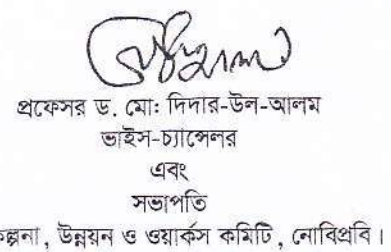 প্রফেসর ড. মো: দিদার-উল-আলম
ভাইস-চ্যান্সেলর
এবং
সভাপতি
উন্নয়ন ও ওয়ার্কস কমিটি, নোবিপ্রবি।